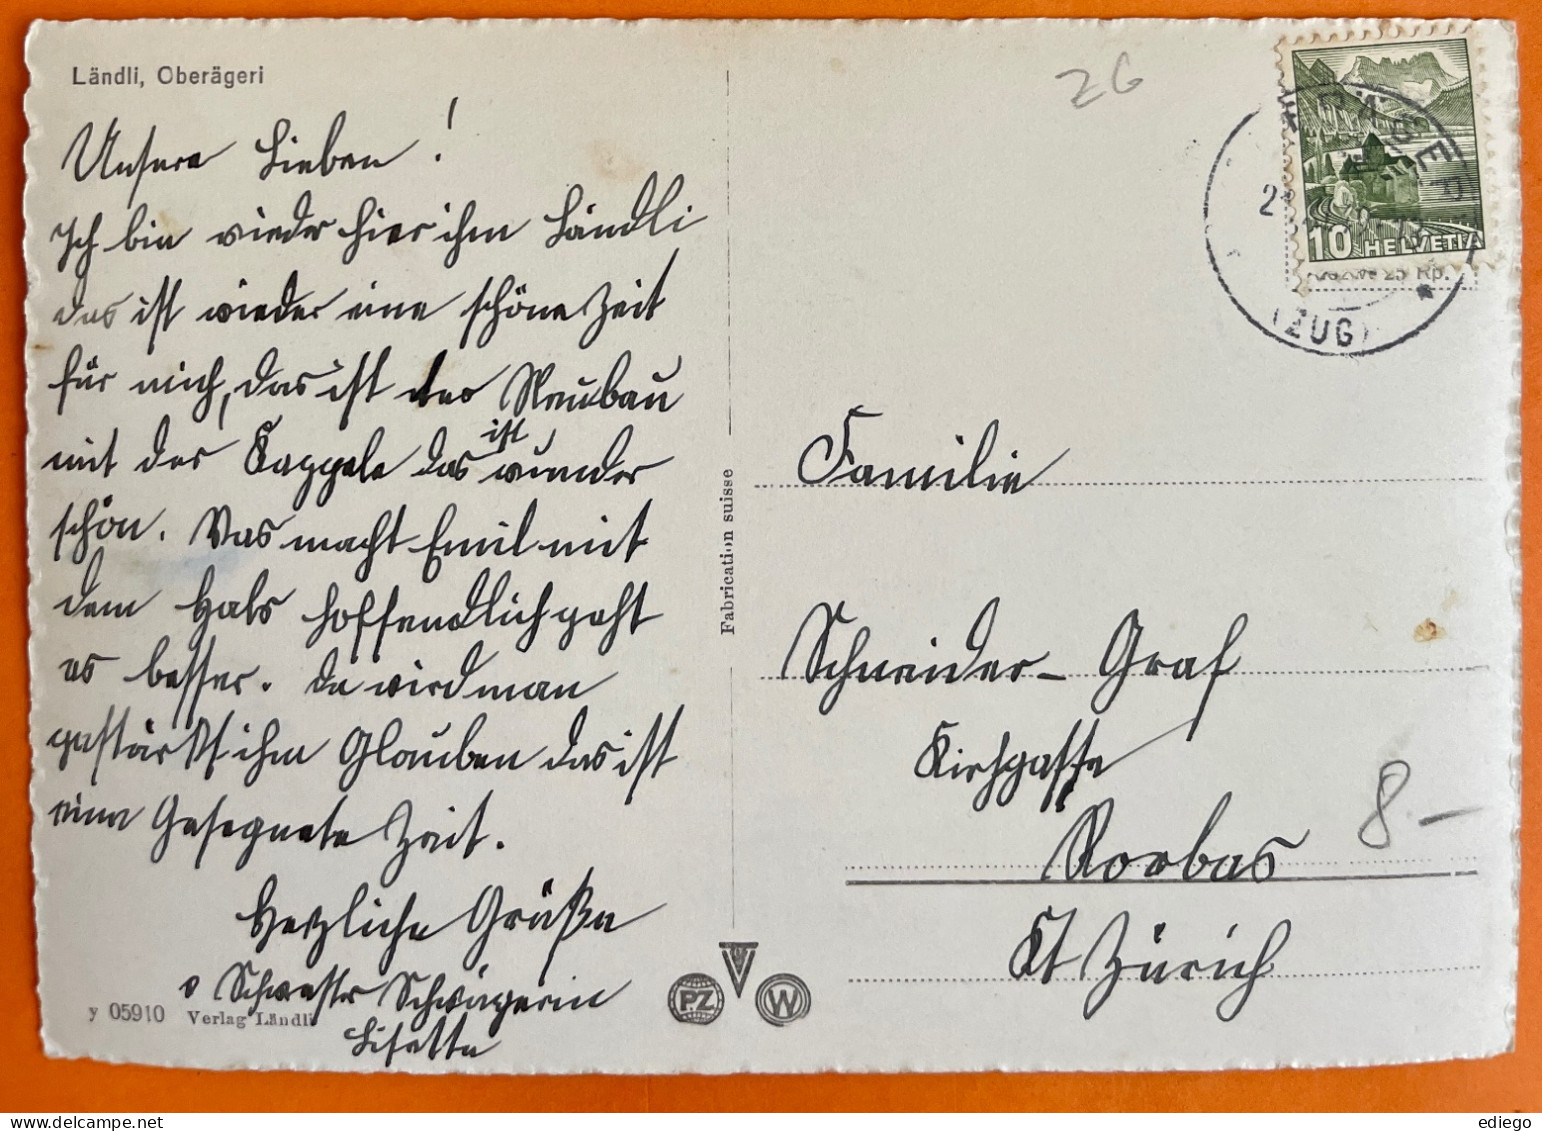 Ländli, Oberägeri
Unsere Lieben!
Ich bin wieder hier ihm Ländli
das ist wieder eine schöne Zeit
für mich, das ist der Neubau
mit der Kappele das ist wunder
schön. Was macht Emil mit
dem Hals hoffendlich geht
es besser. Da wird man
gestärkt ihm Glauben das ist
eine Gesegnete Zeit.
Herzliche Grüße
v Schwester Schwägerin
Lisette
y 05910 Verlag Ländli
Fabrication suisse
PZ
W
ZG
10 HELVETIA
25 Rp.
(ZUG)
Familie
Schneider-Graf
Kirchgasse
Rorbas
Kt Zürich
8-
ediego